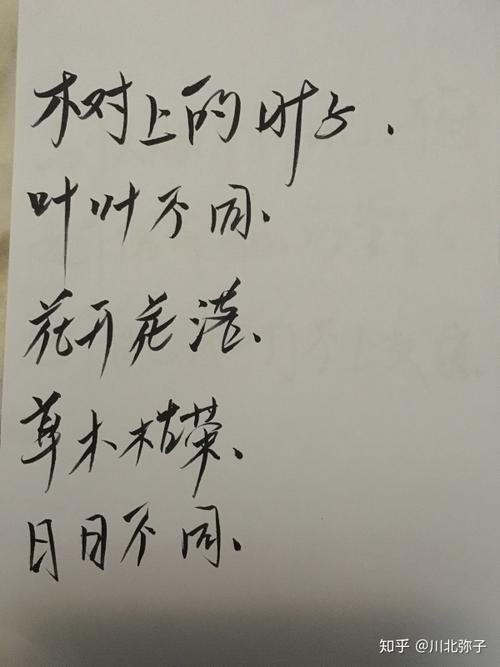 树上的叶子.
叶叶不同、
花开花落、
草木枯荣、
日日不同、
知乎 @川北弥子